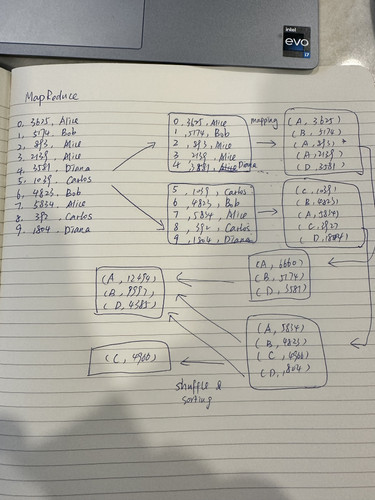 intel
evo
i7
MapReduce
0, 3625, Alice
1, 5174, Bob
2, 893, Alice
3, 2139, Alice
4, 3581, Diana
5, 1039, Carlos
6, 4823, Bob
7, 5834, Alice
8, Carlos
9, 1804, Diana
0, 3625, Alice
1, 5174, Bob
2, 893, Alice
3, 2139, Alice
4, 3581, Diana
5, 1039, Carlos
6, 4823, Bob
7, 5834, Alice
8, Carlos
9, 1804, Diana
mapping
(A, 3625)
(B, 5174)
(A, 893)
(A, 2139)
(D, 3581)
(C, 1039)
(B, 4823)
(A, 5834)
(C,
(D, 1804)
(A, 6660)
(B, 5174)
(D, 3581)
(A, 5834)
(B, 4823)
(C,
(D, 1804)
(A, 12494)
(B, 9997)
(D,
(C,
shuffle &
sorting